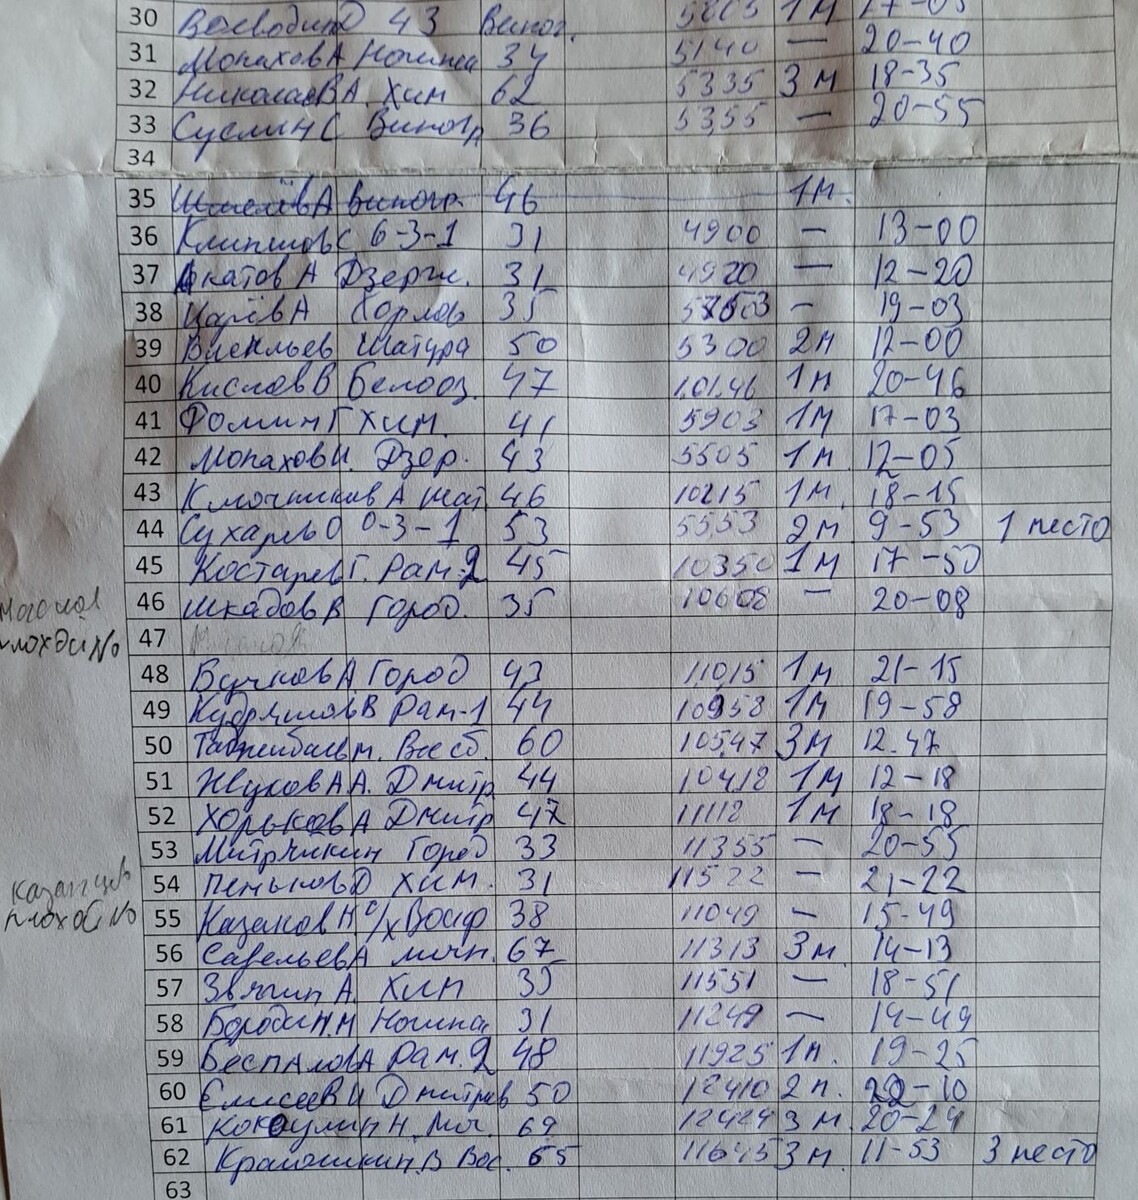 30 Воеводин О 43 Виног. 5803 1м 17-03
31 Монахов А Ногинск 34 5140 — 20-40
32 Николаев А. Хим 62 5335 3м 18-35
33 Суслин С Виногр 36 5355 — 20-55
34
35 Шмелёв А Виногр. 46 1м.
36 Климшов С 6-3-1 31 4900 — 13-00
37 Акатов А Дзерж. 31 4920 — 12-20
38 Царёв А Хорлов 35 — 19-03
39 Васильев Шатура 50 5300 2м 12-00
40 Кислов В Белооз. 47 1.01.46 1м 20-46
41 Фомин Г Хим. 41 5903 1м 17-03
42 Монахов И. Дзер. 43 5505 1м 12-05
43 Ключников А шат. 46 10215 1м 18-15
44 Сухарев О 0-3-1 53 5553 2м 9-53 1 место
45 Костарев Г. Рам-2 45 10350 1м 17-50
46 Шкадов В Город. 35 10608 — 20-08
плохой №
47
48 Бычков А Город 43 11015 1м 21-15
49 Кудряшов В Рам-1 44 10958 1м 19-58
50 м. Восб. 60 10547 3м 12.47
51 Жуков А А. Дмитр 44 10418 1м 12-18
52 Хорьков А Дмитр 47 11118 1м 18-18
53 Митрчикин Город 33 11355 — 20-55
Казанцев
54 Пеньков О Хим. 31 11522 — 21-22
плохой №
55 Казаков Н с/х Воскр 38 11049 — 15-49
56 Савельев А мочн. 67 11313 3м. 14-13
57 Звягин А. Хим 35 11551 — 18-51
58 Бородин. Н Ногинск 31 11249 — 14-49
59 Беспалов А Рам.2 48 11925 1м. 19-25
60 Елисеев И Дмитров 50 12410 2м. 22-10
61 Кокоулин Н. Мч. 69 12424 3м. 20-24
62 Крамошкин. В Вос. 65 11645 3м. 11-53 3 место
63